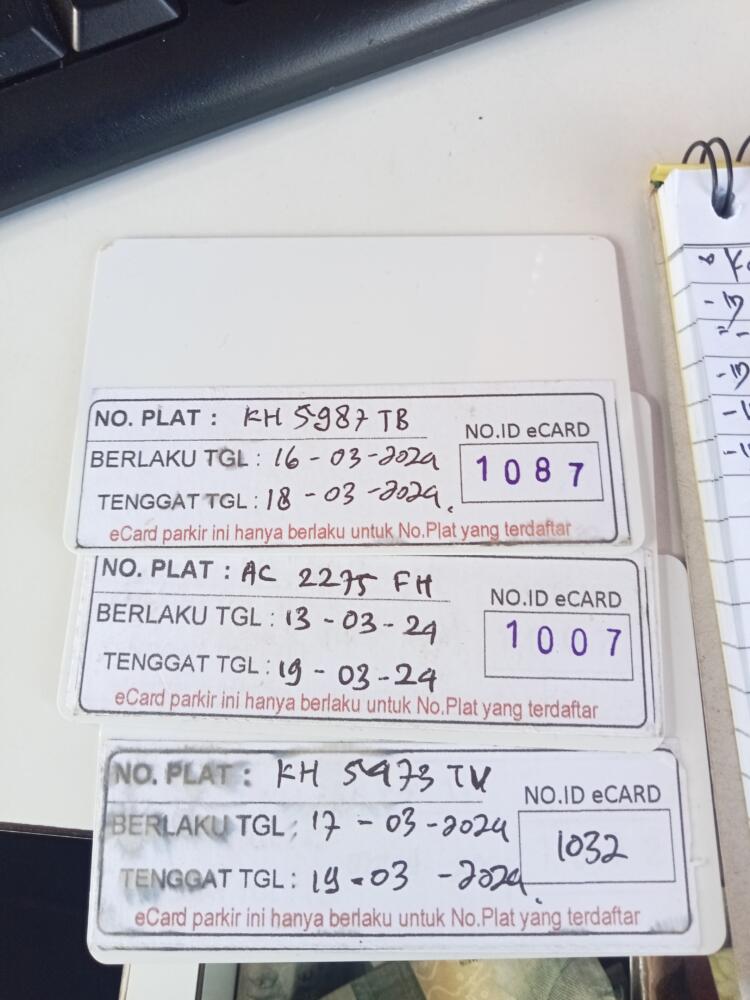 NO. PLAT : KH 5987 TB
NO.ID eCARD
BERLAKU TGL : 16 - 03 - 2024
1087
TENGGAT TGL : 18 - 03 - 2024.
eCard parkir ini hanya berlaku untuk No.Plat yang terdaftar
NO. PLAT : AC 2275 FH
NO.ID eCARD
BERLAKU TGL : 13 - 03 - 24
1007
TENGGAT TGL : 19 - 03 - 24
eCard parkir ini hanya berlaku untuk No.Plat yang terdaftar
NO. PLAT : KH 5973 TV
NO.ID eCARD
BERLAKU TGL : 17 - 03 - 2024
1032
TENGGAT TGL : 19 - 03 - 2024.
eCard parkir ini hanya berlaku untuk No.Plat yang terdaftar